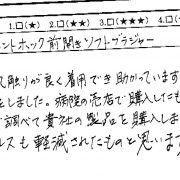 1.□(★) 2.□(★★) 3.□(★★★) 4.□(
ントホック前開きソフトブラジャー
触りが良く着用でき助かっています
をしました。病院の売店で購入したも
で調べて貴社の製品を購入しま
スも軽減されたものと思います